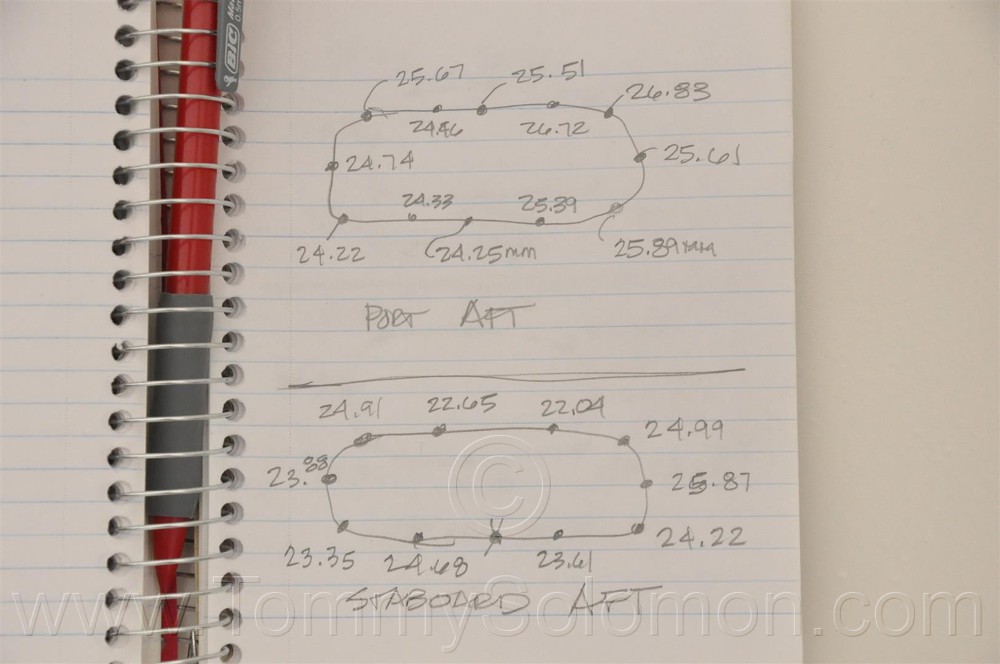 BIC
25.67 25.51 26.83
24.46 26.72
24.74 25.61
24.33 25.39
24.22 24.25mm 25.89mm
PORT AFT
24.91 22.65 22.04 24.99
23.88 25.87
23.35 24.68 23.61 24.22
STABOARD AFT
©
www.TommySolomon.com